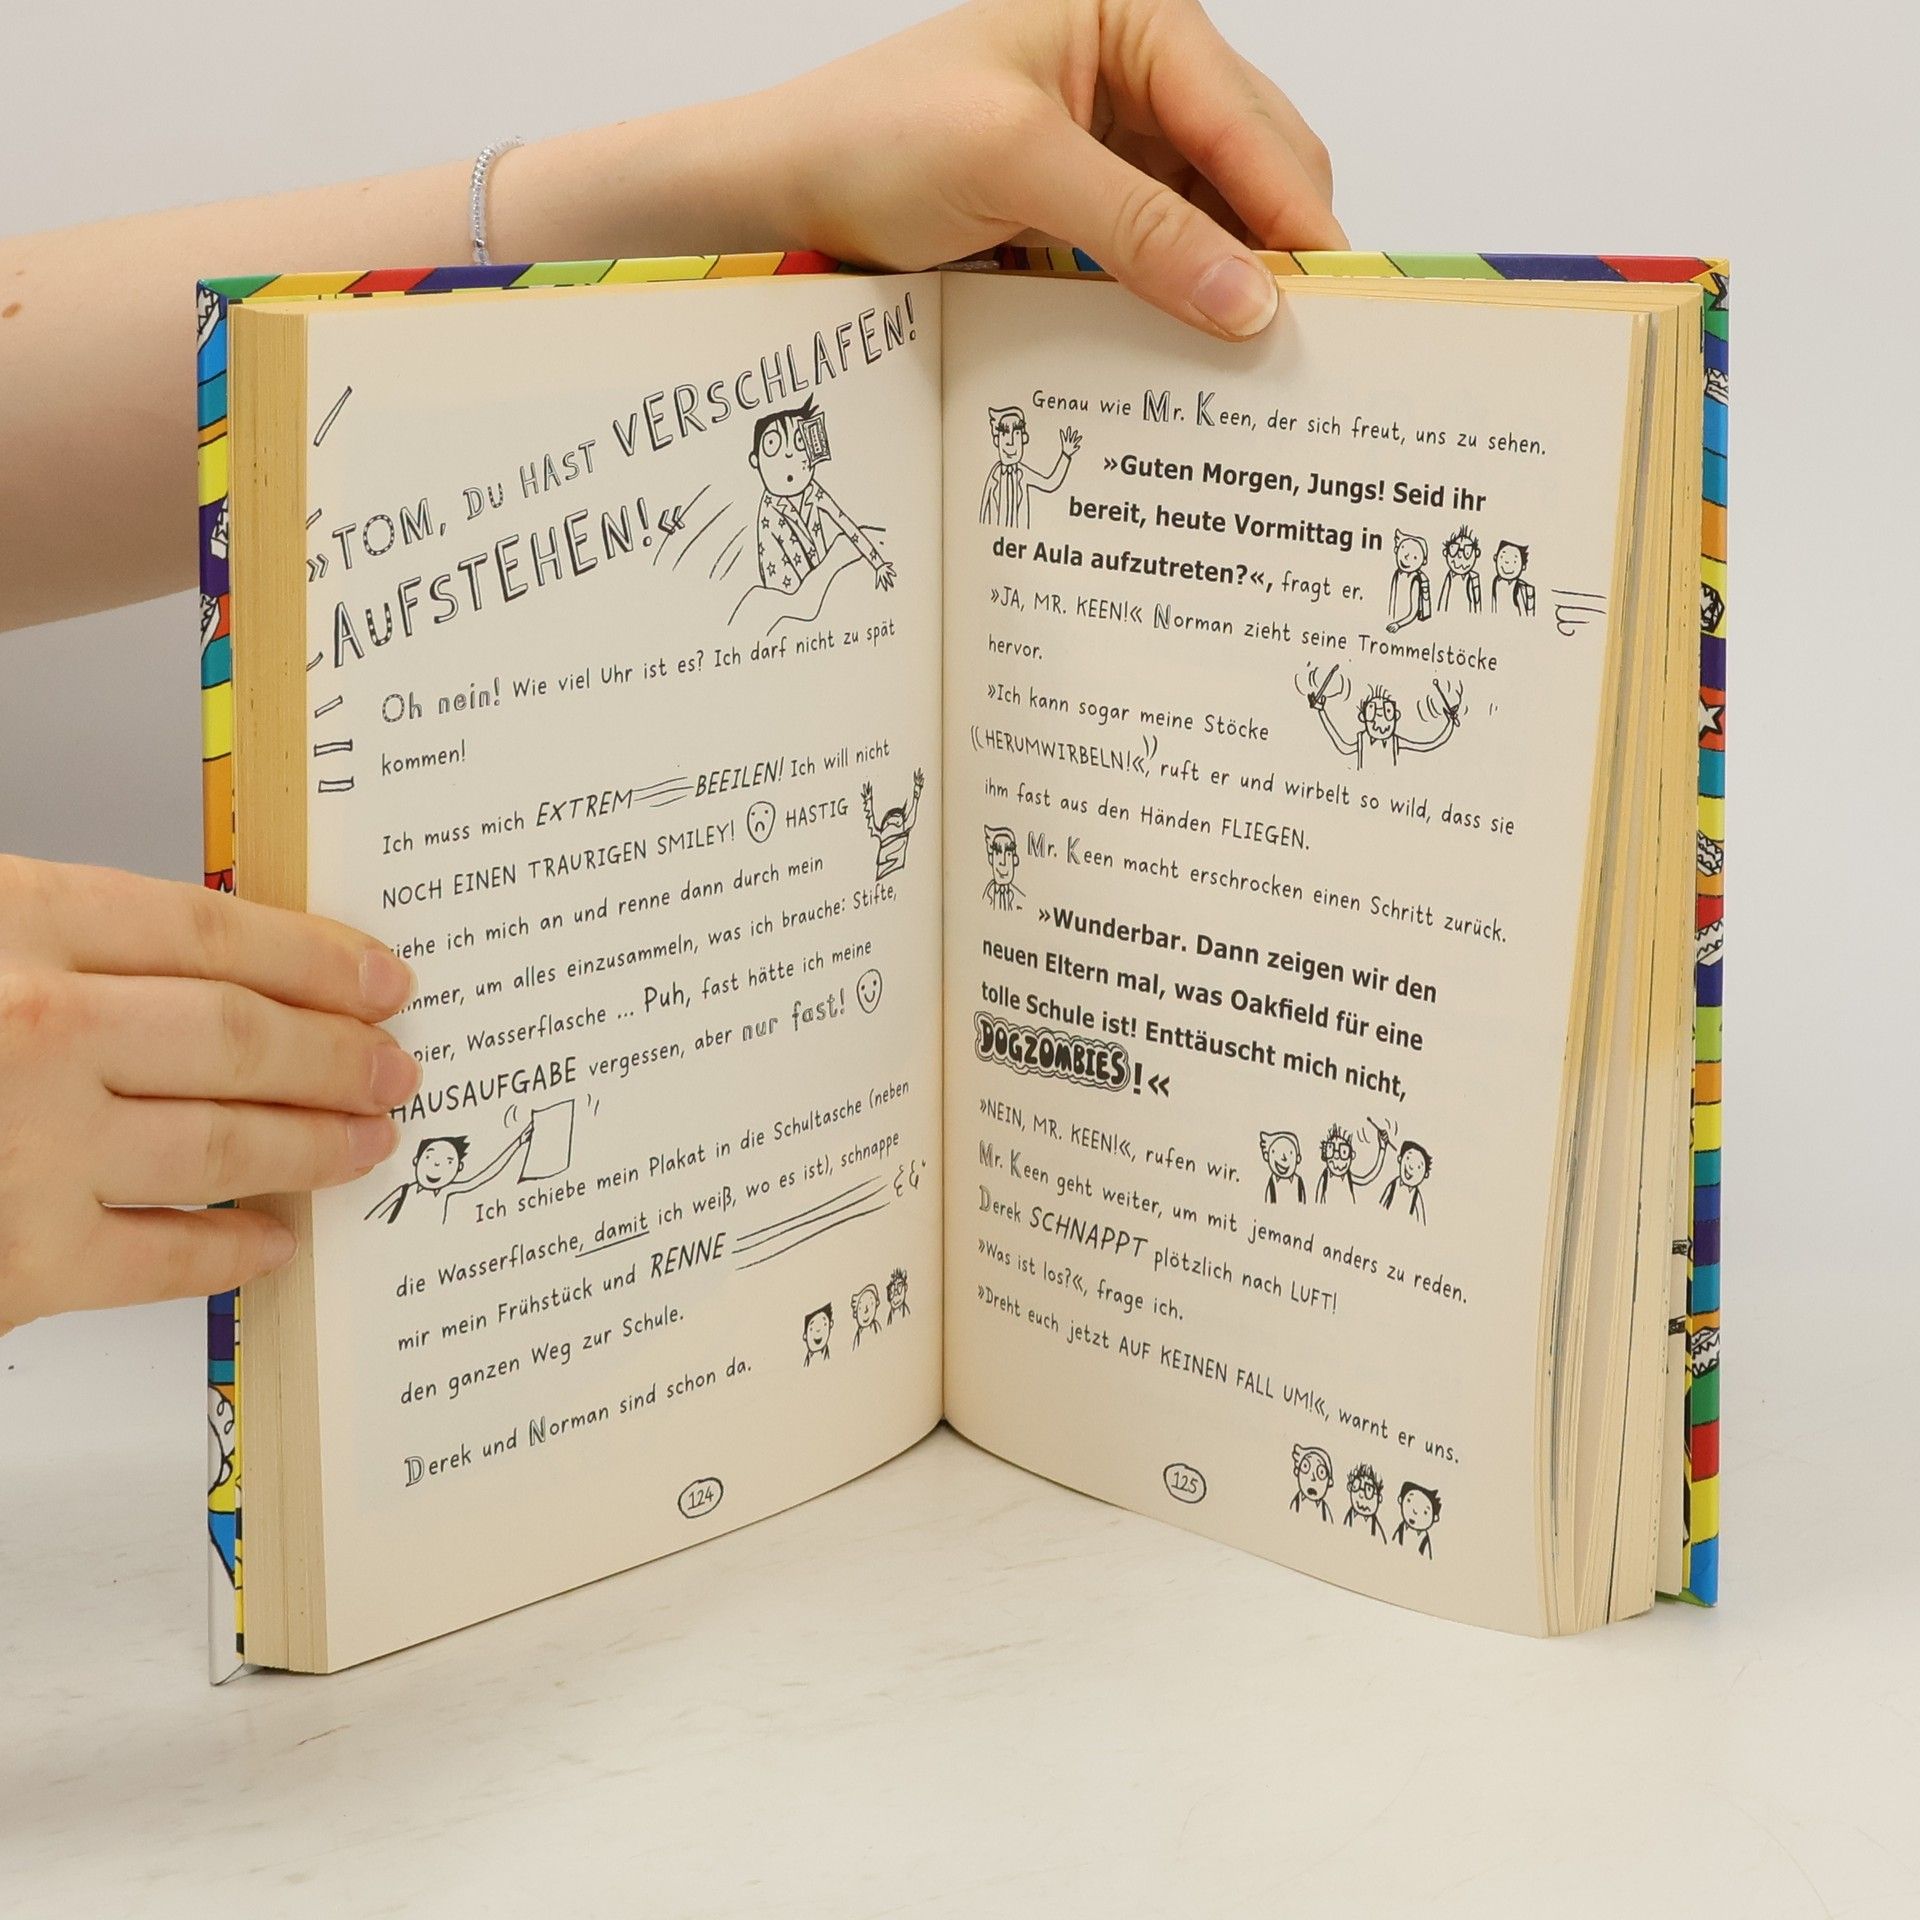 »TOM, DU HAST VERSCHLAFEN!
AUFSTEHEN!«
Oh nein! Wie viel Uhr ist es? Ich darf nicht zu spät
kommen!
Ich muss mich EXTREM BEEILEN! Ich will nicht
NOCH EINEN TRAURIGEN SMILEY! HASTIG
ich mich an und renne dann durch mein
um alles einzusammeln, was ich brauche: Stifte,
Wasserflasche ... Puh, fast hätte ich meine
HAUSAUFGABE vergessen, aber nur fast!
Ich schiebe mein Plakat in die Schultasche (neben
die Wasserflasche, damit ich weiß, wo es ist), schnappe
mir mein Frühstück und RENNE
den ganzen Weg zur Schule.
Derek und Norman sind schon da.
124
Genau wie Mr. Keen, der sich freut, uns zu sehen.
»Guten Morgen, Jungs! Seid ihr
bereit, heute Vormittag in
der Aula aufzutreten?«, fragt er.
»JA, MR. KEEN!« Norman zieht seine Trommelstöcke
hervor.
»Ich kann sogar meine Stöcke
HERUMWIRBELN!«, ruft er und wirbelt so wild, dass sie
ihm fast aus den Händen FLIEGEN.
Mr. Keen macht erschrocken einen Schritt zurück.
»Wunderbar. Dann zeigen wir den
neuen Eltern mal, was Oakfield für eine
tolle Schule ist! Enttäuscht mich nicht,
DOGZOMBIES!«
»NEIN, MR. KEEN!«, rufen wir.
Mr. Keen geht weiter, um mit jemand anders zu reden.
Derek SCHNAPPT plötzlich nach LUFT!
»Was ist los?«, frage ich.
»Dreht euch jetzt AUF KEINEN FALL UM!«, warnt er uns.
125